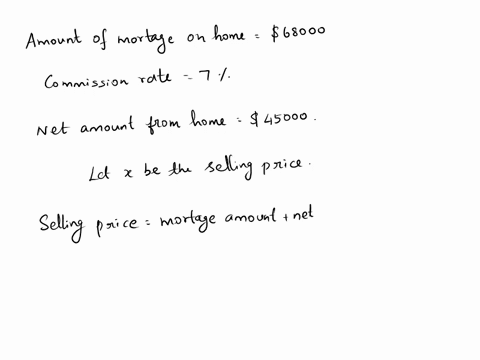 Amount of mortage on home = $68000
Commission rate = 7 %
Net amount from home = $45000.
Let x be the selling price.
Selling price = mortage amount + net